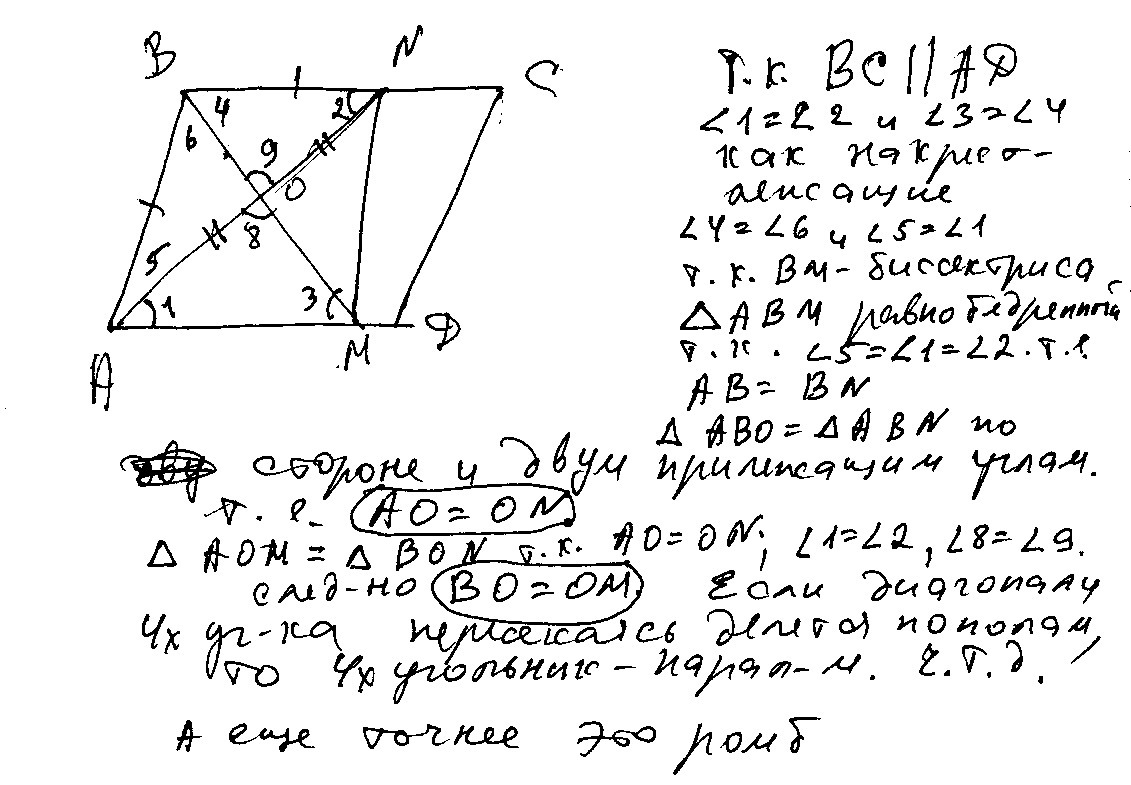 B N C
4 1 2
6 9 O
5 8
1 3
A M D
т.к. BC || AD
∠1=∠2 и ∠3=∠4
как накрест-
лежащие
∠4=∠6 и ∠5=∠1
т.к. BM - биссектриса
△ABM равнобедренный
т.к. ∠5=∠1=∠2. т.е.
AB = BN
△ ABO = △ABN по
стороне и двум прилежащим углам.
т.е. AO = ON.
△ AOM = △ BON т.к. AO=ON; ∠1=∠2, ∠8=∠9.
след-но BO=OM. Если диагонали
4х уг-ка пересекаясь делятся пополам,
то 4х угольник - парал-м. ч.т.д.
А еще точнее это ромб